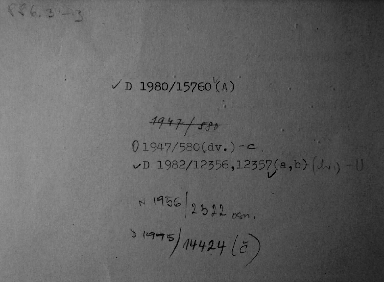 ✓ D 1980/15760 (A)
1947/580
O 1947/580(dv.) - c
✓ D 1982/12356,12357(a,b) (dv.) - 11
N 1956/2322 osn.
D 1995/14424 (č)